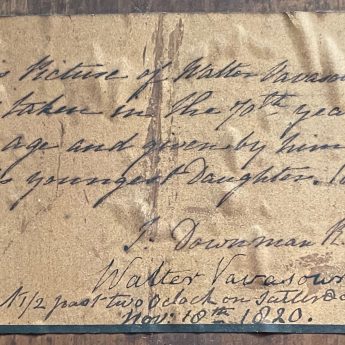 s Picture of Walter Vavas
taken in the 70th yea
age and given by him
s youngest Daughter.
J. Downman R.
Walter Vavasour
1/2 past two O'Clock on Satterda
Nov: 18th 1820.